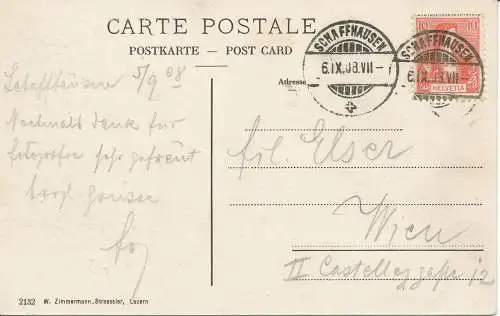 CARTE POSTALE
POSTKARTE – POST CARD
Adresse
SCHAFFHAUSEN
6.IX.08.VII–
SCHAFFHAUSEN
6.IX.08.VII–
10 10
HELVETIA
Schaffhausen 5/9 08
Nochmals Dank für
sehr gefreut
Frl. Elser
Wien
II Castellezgasse 12
2132 W. Zimmermann-Straessler, Luzern